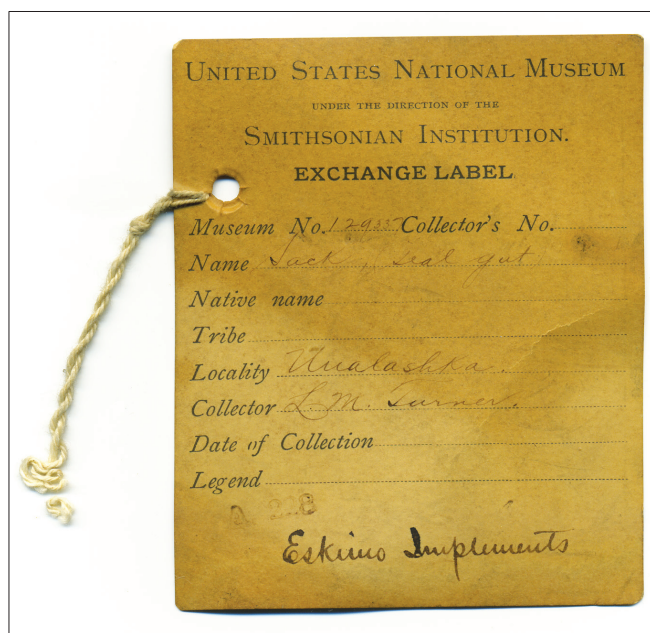 UNITED STATES NATIONAL MUSEUM
UNDER THE DIRECTION OF THE
SMITHSONIAN INSTITUTION.
EXCHANGE LABEL.
Museum No. Collector's No.
Name Sack, seal gut
Native name
Tribe
Locality Unalashka.
Collector L. M. Turner.
Date of Collection
Legend
Eskimo Implements